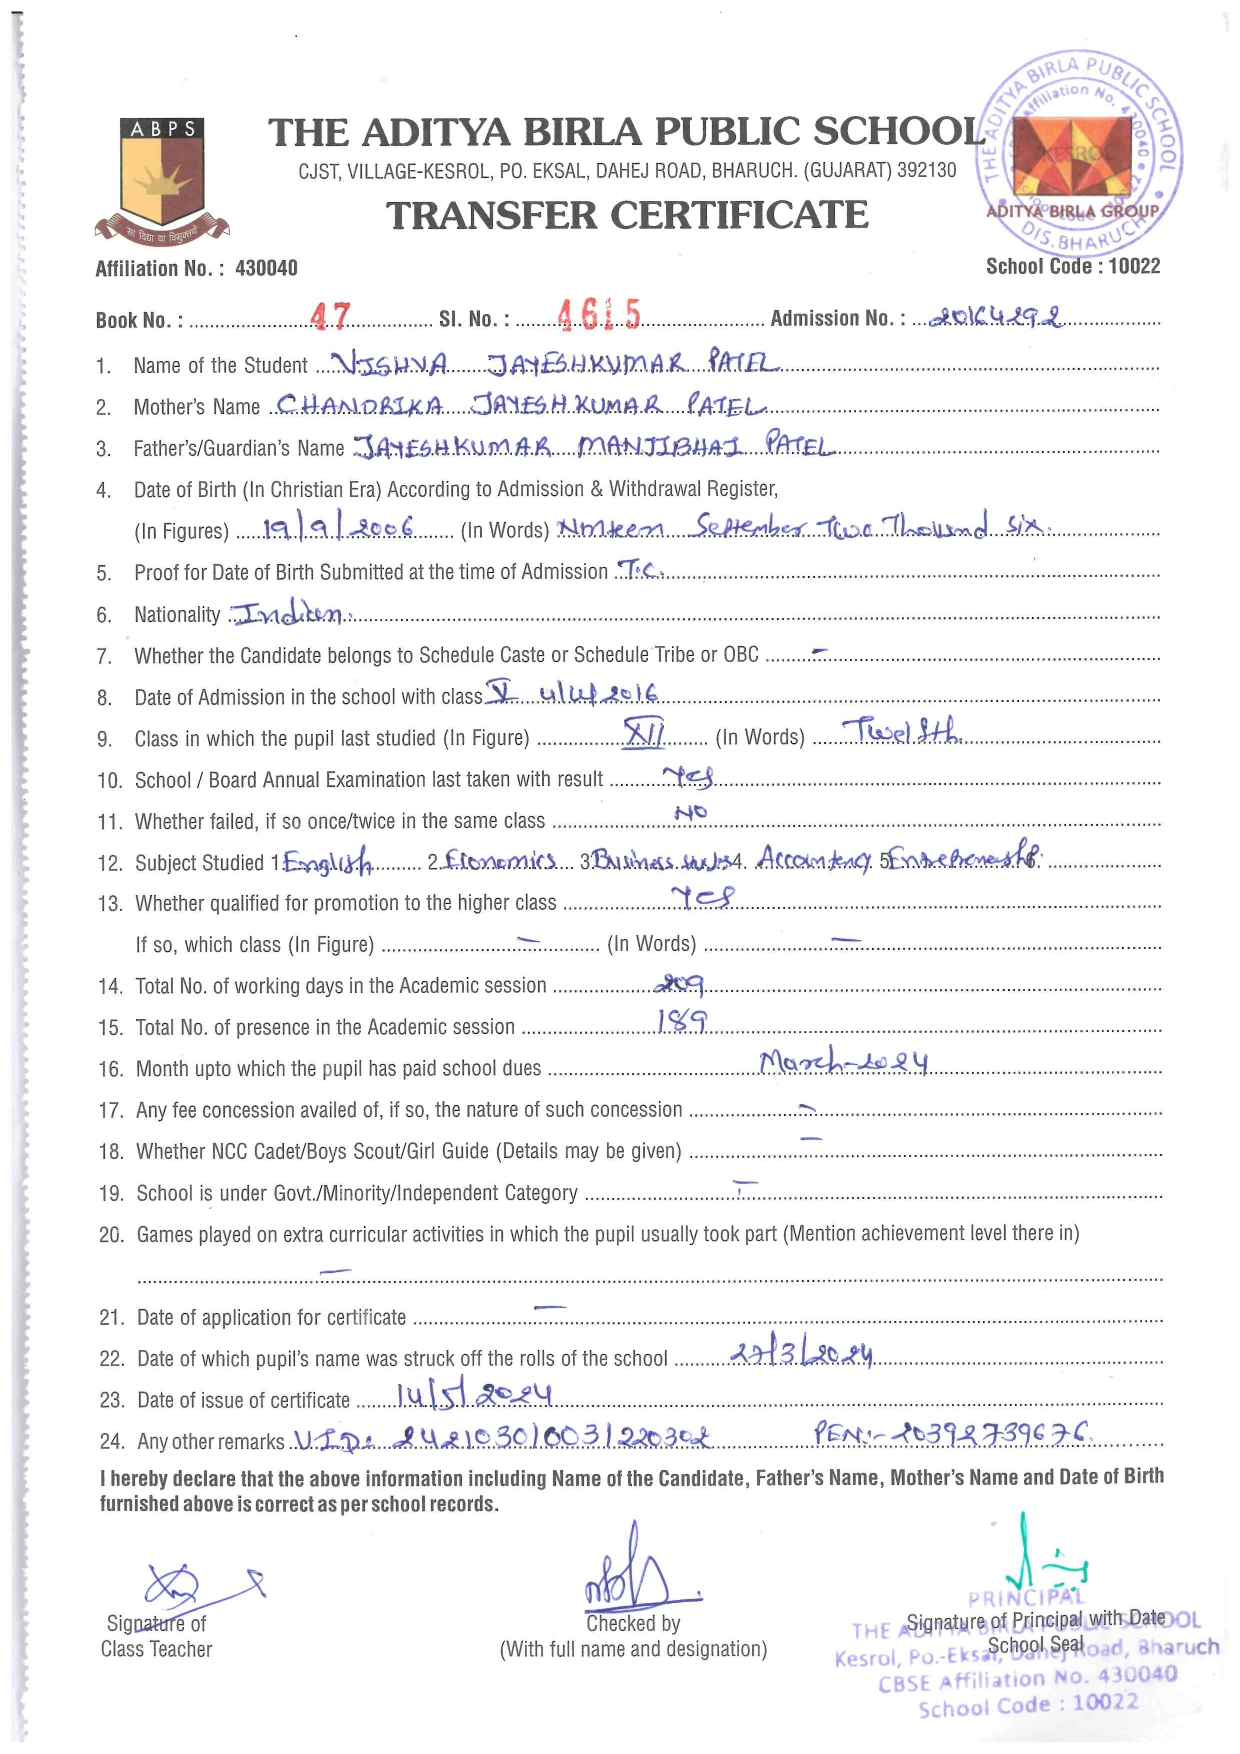 ABPS
THE ADITYA BIRLA PUBLIC SCHOOL
CJST, VILLAGE-KESROL, PO. EKSAL, DAHEJ ROAD, BHARUCH. (GUJARAT) 392130
TRANSFER CERTIFICATE
सा विद्या या विमुक्तये
THE ADITYA BIRLA PUBLIC SCHOOL
Affiliation No. 430040
KESROL
ADITYA BIRLA GROUP
DIS. BHARUCH
Affiliation No. : 430040 School Code : 10022
Book No. : 47 Sl. No. : 4615 Admission No. :
1. Name of the Student VISHVA JAYESHKUMAR PATEL
2. Mother's Name CHANDRIKA JAYESHKUMAR PATEL
3. Father's/Guardian's Name JAYESHKUMAR MANJIBHAI PATEL
4. Date of Birth (In Christian Era) According to Admission & Withdrawal Register,
(In Figures) 19/9/2006 (In Words) September Two Thousand Six.
5. Proof for Date of Birth Submitted at the time of Admission T.C.
6. Nationality Indian.
7. Whether the Candidate belongs to Schedule Caste or Schedule Tribe or OBC -
8. Date of Admission in the school with class V 4/4/2016
9. Class in which the pupil last studied (In Figure) XII (In Words) Twelfth
10. School / Board Annual Examination last taken with result Yes
11. Whether failed, if so once/twice in the same class NO
12. Subject Studied 1. English 2. Economics 3. Business 4. Accountancy 5. 6.
13. Whether qualified for promotion to the higher class Yes
If so, which class (In Figure) - (In Words) -
14. Total No. of working days in the Academic session 209
15. Total No. of presence in the Academic session 189
16. Month upto which the pupil has paid school dues March-2024
17. Any fee concession availed of, if so, the nature of such concession -
18. Whether NCC Cadet/Boys Scout/Girl Guide (Details may be given) -
19. School is under Govt./Minority/Independent Category -
20. Games played on extra curricular activities in which the pupil usually took part (Mention achievement level there in)
-
21. Date of application for certificate -
22. Date of which pupil's name was struck off the rolls of the school 27/3/2024
23. Date of issue of certificate 14/5/2024
24. Any other remarks U.I.D: 2421030/003/220302 PEN:- 20392739676
I hereby declare that the above information including Name of the Candidate, Father's Name, Mother's Name and Date of Birth
furnished above is correct as per school records.
Signature of Class Teacher
Checked by
(With full name and designation)
Signature of Principal with Date
School Seal
PRINCIPAL
THE ADITYA BIRLA PUBLIC SCHOOL
Kesrol, Po.-Eksal, Dahej Road, Bharuch
CBSE Affiliation No. 430040
School Code : 10022